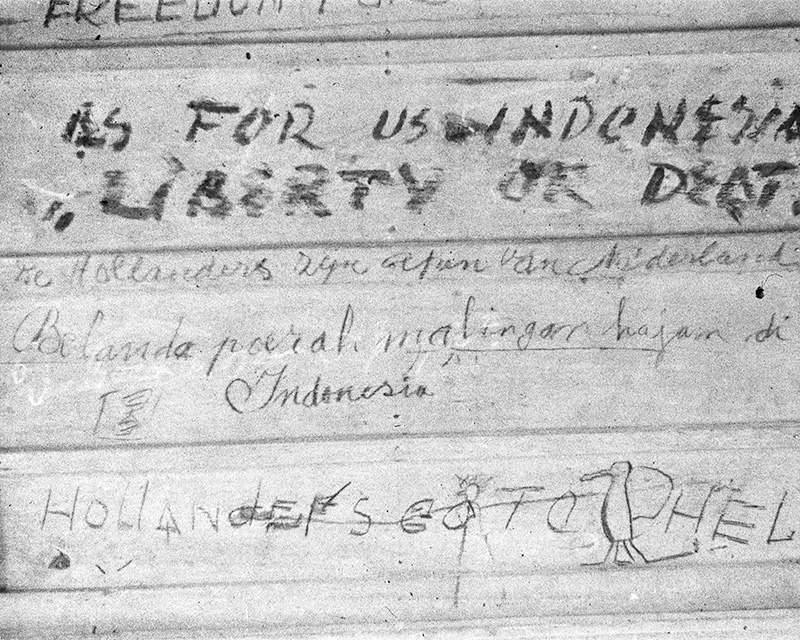 FREEDOM
AS FOR US INDONESIA
"LIBERTY OR DEAT
De Hollanders zijn van Niderland
Belanda poerah malingan hajam di
Indonesia
HOLLANDERS GO TO HEL